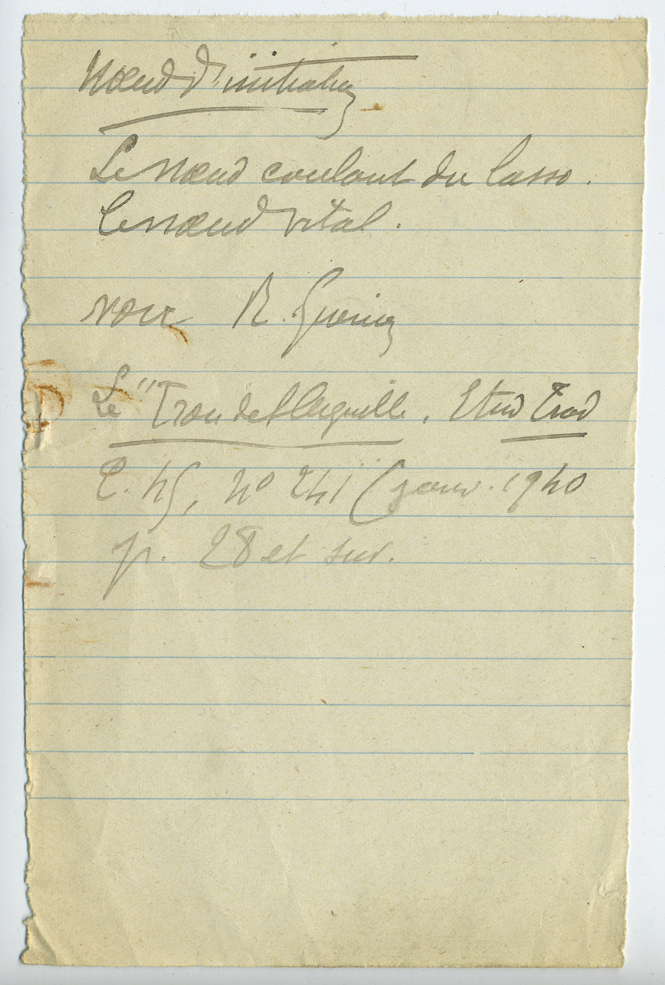 Nœud d'initiation
Le nœud coulant du lasso.
Le nœud vital.
voir R. Guénon
Le "Trou de l'Aiguille. Etud Trad
T. 45, No 241 (janv. 1940
p. 28 et suiv.